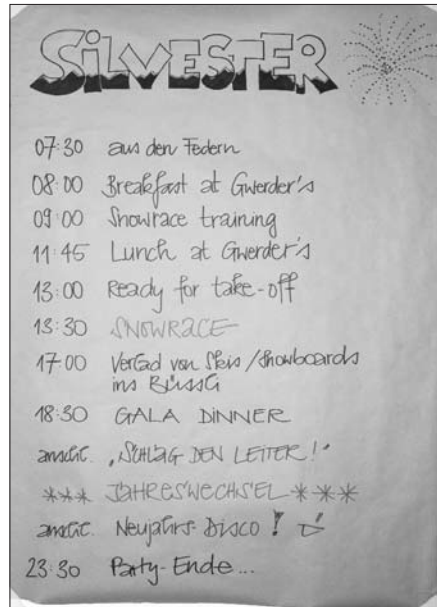 SILVESTER
07:30 aus den Federn
08:00 Breakfast at Gwerder's
09:00 Snowrace training
11:45 Lunch at Gwerder's
13:00 Ready for take-off
13:30 SNOWRACE
17:00 Verlad von Skis / Snowboards
ins Büssli
18:30 GALA DINNER
anschl. "SCHLAG DEN LEITER!"
*** JAHRESWECHSEL ***
anschl. Neujahrs-Disco!
23:30 Party-Ende...